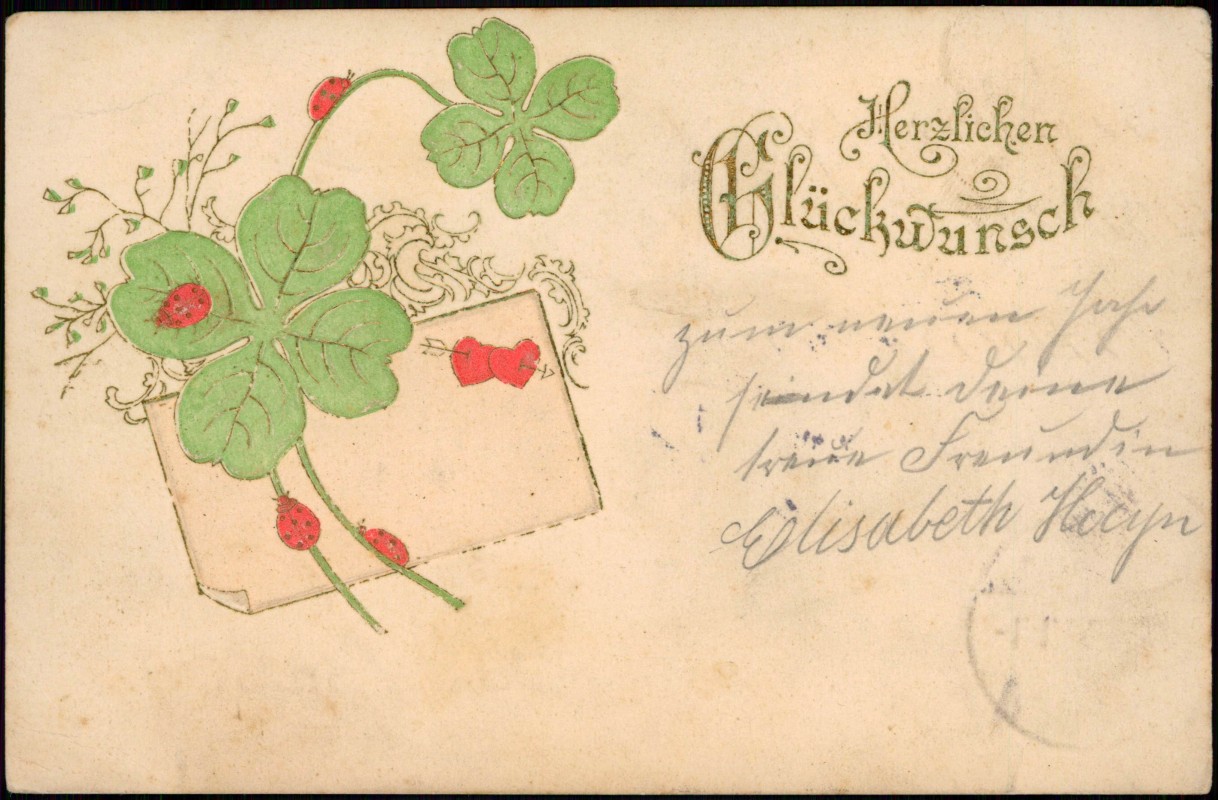 Herzlichen
Glückwunsch
zum neuen Jahr
sendet deine
treue Freundin
Elisabeth